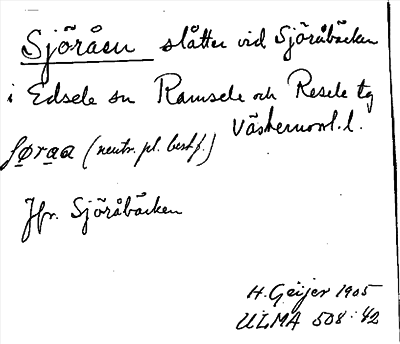 Sjöråen slåtter vid Sjöråbäcken
i Edsele sn Ramsele och Resele tg
Västernorrl. l.
føraa (neutr. pl. best f.)
Jfr. Sjöråbäcken
H. Geijer 1905
ULMA 508:42